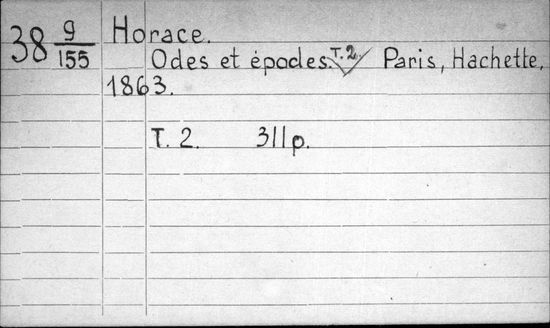 38 9/155 Horace.
Odes et épodes. T. 2. Paris, Hachette,
1863.
T. 2. 311 p.